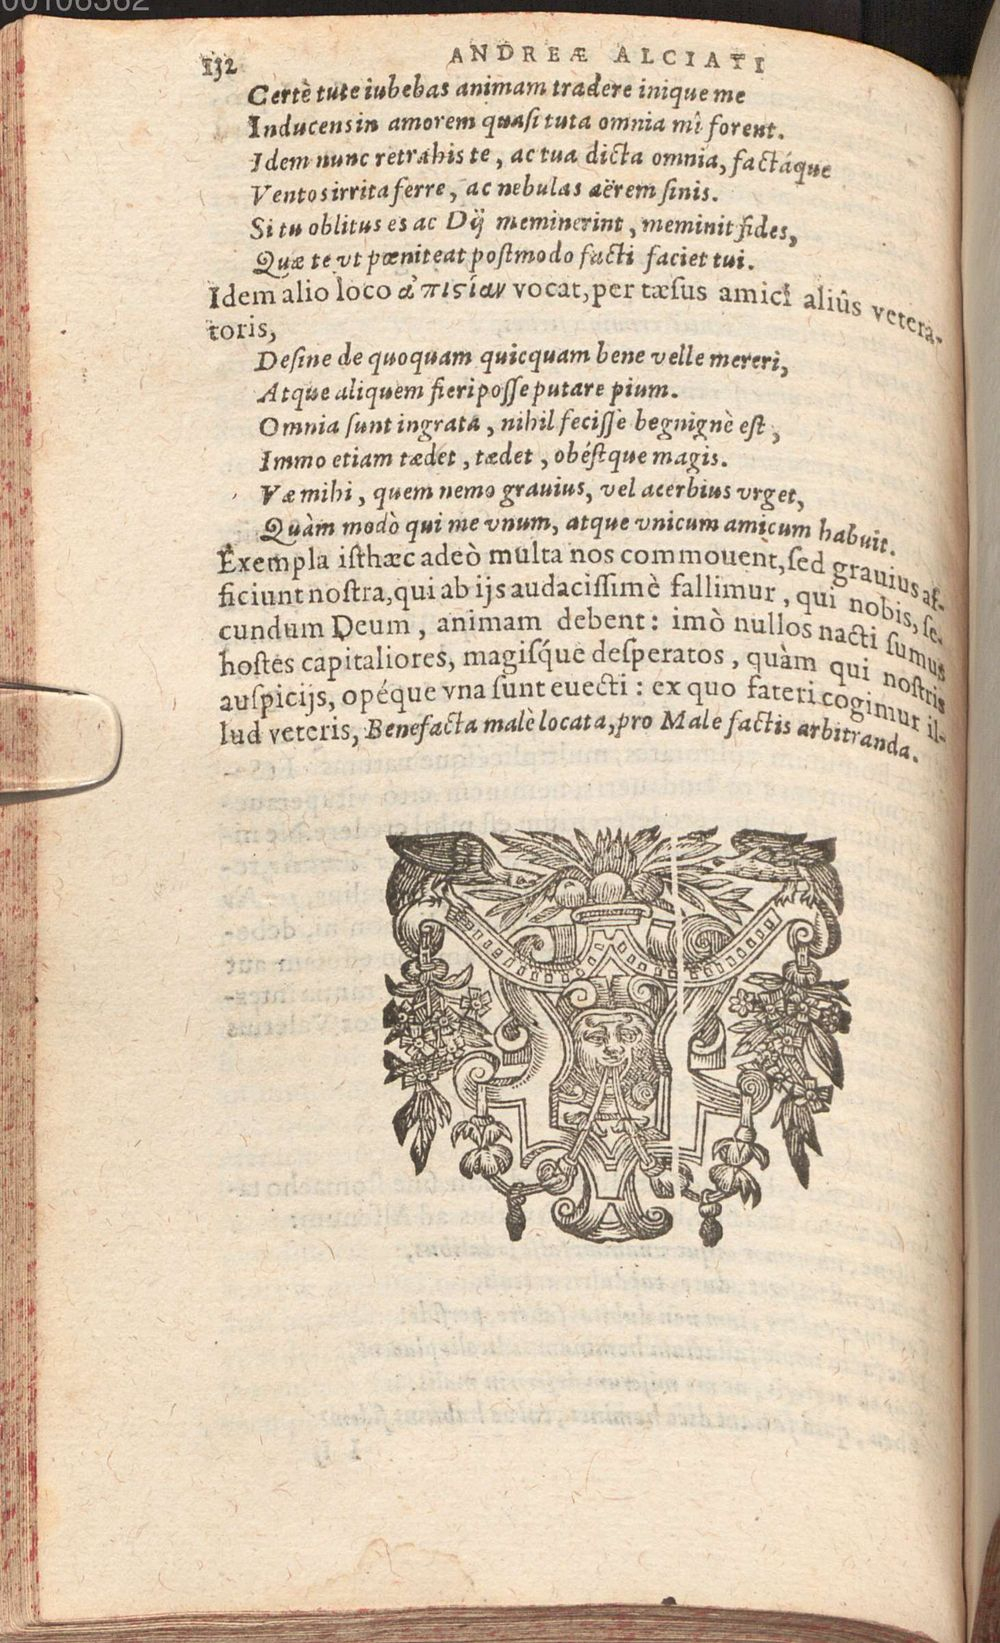 00106362
132 ANDREÆ ALCIATI
Certè tute iubebas animam tradere inique me
Inducens in amorem quasi tuta omnia mî forent.
Idem nunc retrahis te, ac tua dicta omnia, factáque
Ventos irrita ferre, ac nebulas aërem sinis.
Si tu oblitus es ac Dij meminerint, meminit fides,
Quæ te vt pœniteat postmodo facti faciet tui.
Idem alio loco ἀπιϛίαν vocat, per tæsus amici aliûs vetera-
toris,
Desine de quoquam quicquam bene velle mereri,
Atque aliquem fieri posse putare pium.
Omnia sunt ingrata, nihil fecisse begnignè est,
Immo etiam tædet, tædet, obéstque magis.
Væ mihi, quem nemo grauius, vel acerbius vrget,
Quàm modò qui me vnum, atque vnicum amicum habuit.
Exempla isthæc adeò multa nos commouent, sed grauius af-
ficiunt nostra, qui ab ijs audacissimè fallimur, qui nobis, se-
cundum Deum, animam debent: imò nullos nacti sumus
hostes capitaliores, magisq́ue desperatos, quàm qui nostris
auspicijs, opéque vna sunt euecti: ex quo fateri cogimur il-
lud veteris, Benefacta malè locata, pro Male factis arbitranda.